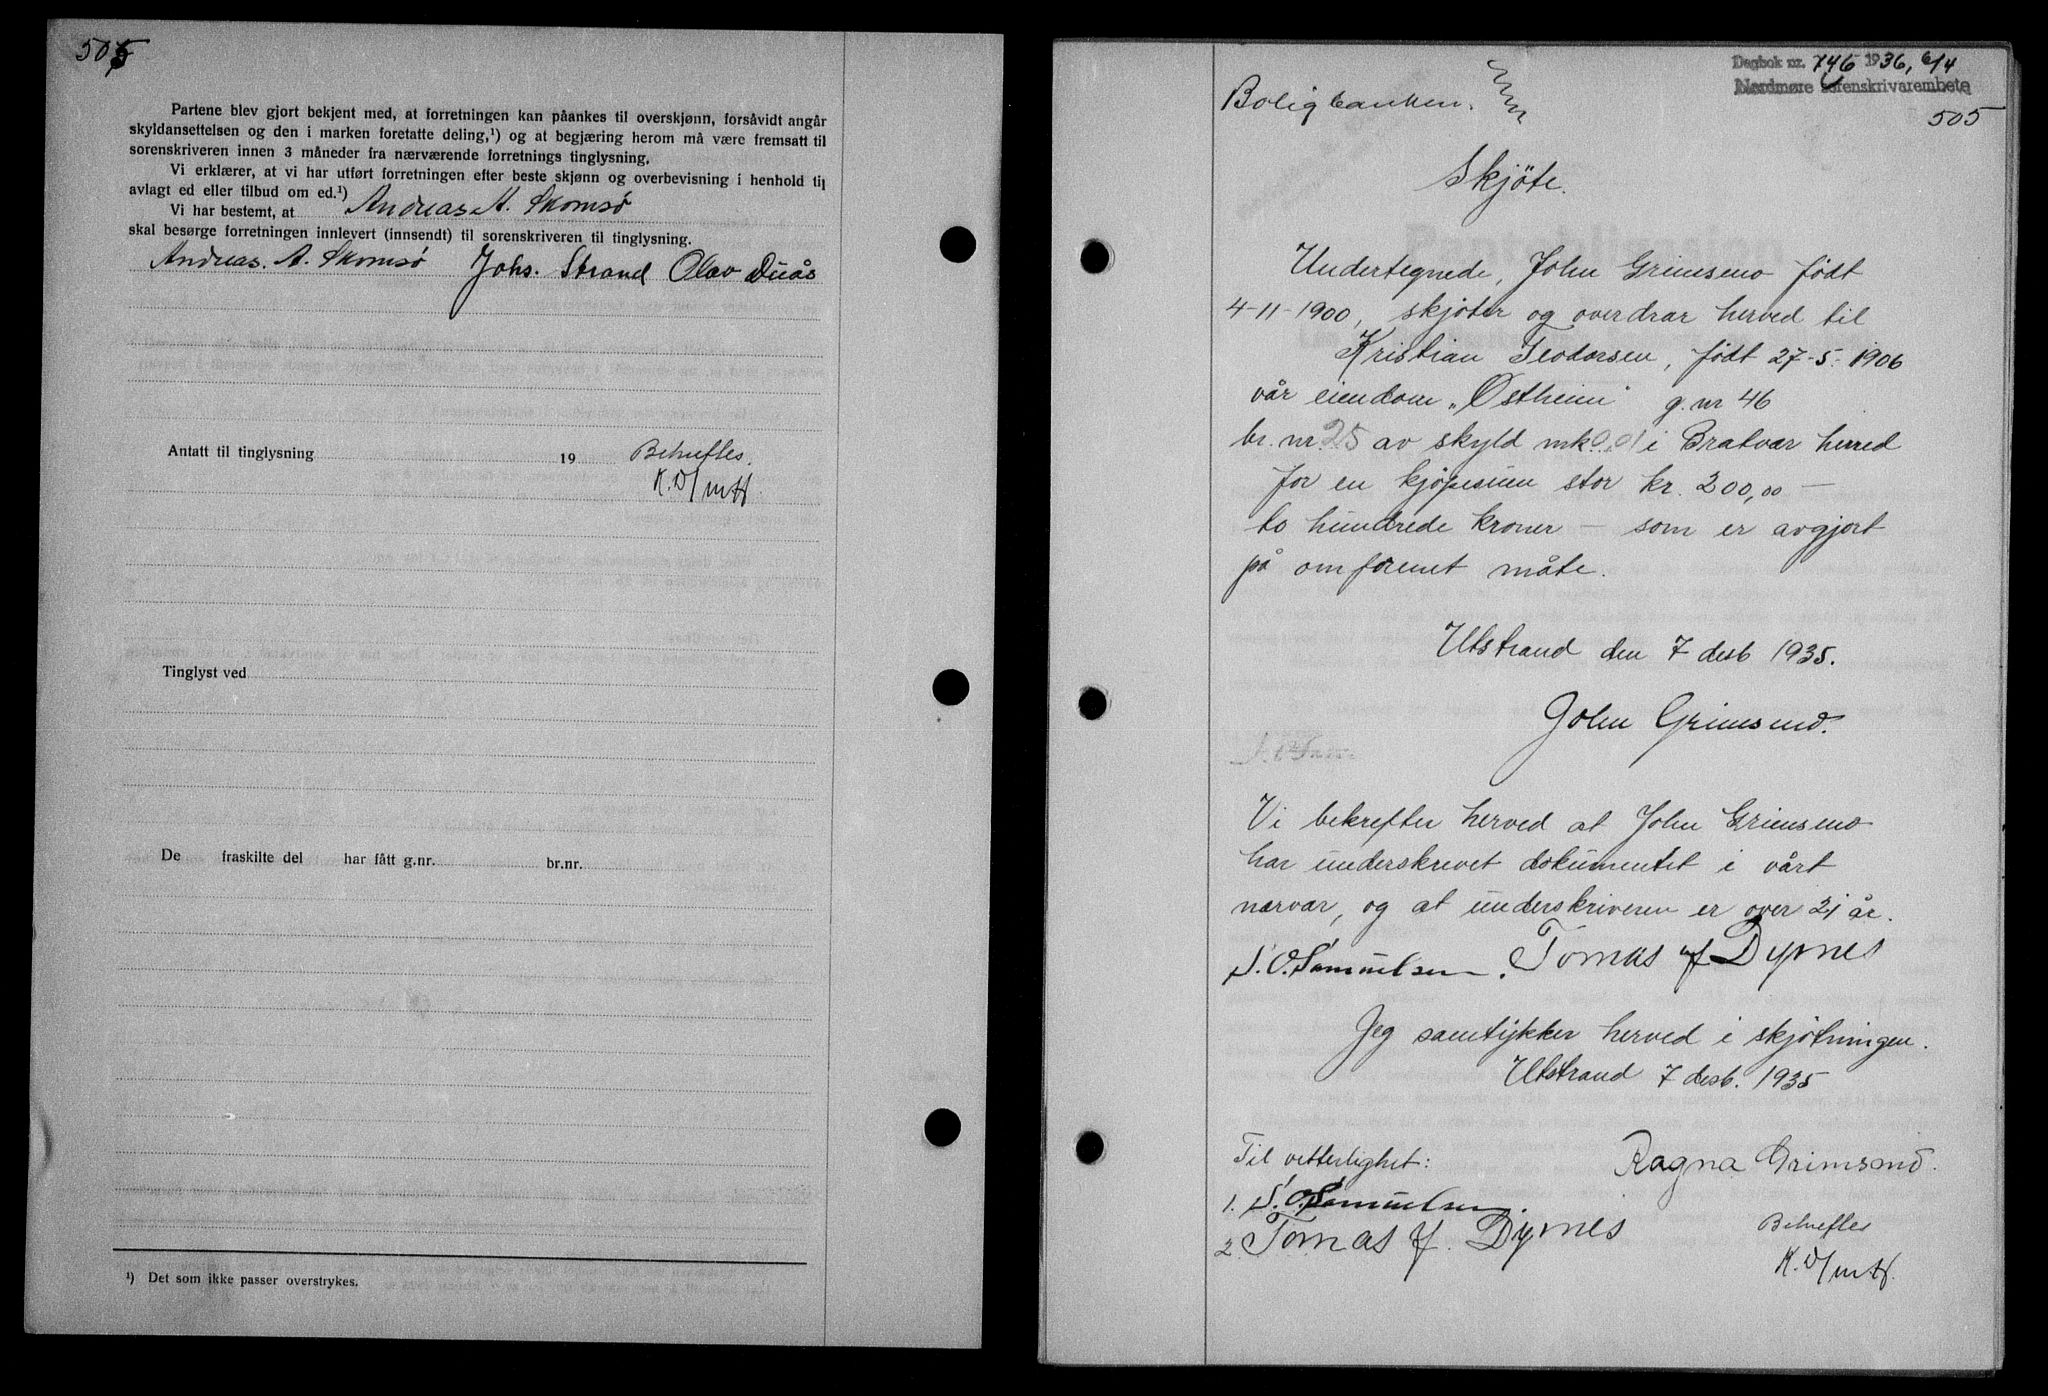 505
Partene blev gjort bekjent med, at forretningen kan påankes til overskjønn, forsåvidt angår
skyldansettelsen og den i marken foretatte deling,¹) og at begjæring herom må være fremsatt til
sorenskriveren innen 3 måneder fra nærværende forretnings tinglysning.
Vi erklærer, at vi har utført forretningen efter beste skjønn og overbevisning i henhold til
avlagt ed eller tilbud om ed.¹)
Vi har bestemt, at Andreas A. Skomsø
skal besørge forretningen innlevert (innsendt) til sorenskriveren til tinglysning.
Andreas. A. Skomsø Johs. Strand Olav Duås
Antatt til tinglysning 19 Bekreftes.
Tinglyst ved
De fraskilte del har fått g.nr. br.nr.
¹) Det som ikke passer overstrykes.
Dagbok nr. 746 1936, 6/4
Nordmøre sorenskrivarembete
Boligbanken.
505
Skjöte.
Undertegnede, John Grimsmo født
4-11-1900, skjøter og overdrar herved til
Kristian Teodorsen, født 27-5-1906
vår eiendom „Østheim" g. nr 46
br. nr. 25 av skyld mk 0.01 i Bratvær herred
for en kjøpesum stor kr. 200,00 —
to hundrede kroner — som er avgjort
på omforenet måte.
Utstrand den 7 desb 1935.
John Grimsmo.
Vi bekrefter herved at John Grimsmo
har underskrevet dokumentet i vårt
nærvær, og at underskriveren er over 21 år.
S. O. Samuelsen. Tomas J Dyrnes
Jeg samtykker herved i skjøtningen.
Utstrand 7 desb. 1935
Til vitterlighet: Ragna Grimsmo.
1. S. O. Samuelsen.
2 Tomas J. Dyrnes
Bekreftes